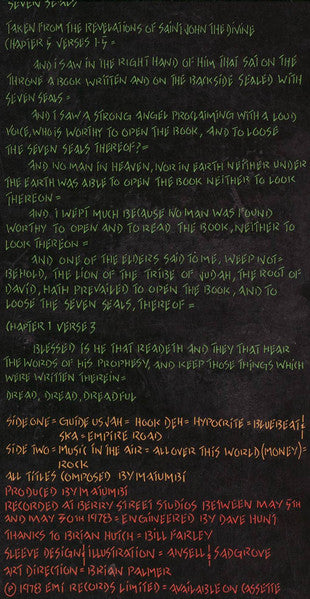 SEVEN SEALS
TAKEN FROM THE REVELATIONS OF SAINT JOHN THE DIVINE
CHAPTER 5 VERSES 1-5 =
AND I SAW IN THE RIGHT HAND OF HIM THAT SAT ON THE
THRONE A BOOK WRITTEN AND ON THE BACKSIDE SEALED WITH
SEVEN SEALS =
AND I SAW A STRONG ANGEL PROCLAIMING WITH A LOUD
VOICE, WHO IS WORTHY TO OPEN THE BOOK, AND TO LOOSE
THE SEVEN SEALS THEREOF? =
AND NO MAN IN HEAVEN, NOR IN EARTH NEITHER UNDER
THE EARTH WAS ABLE TO OPEN THE BOOK NEITHER TO LOOK
THEREON =
AND I WEPT MUCH BECAUSE NO MAN WAS FOUND
WORTHY TO OPEN AND TO READ THE BOOK, NEITHER TO
LOOK THEREON =
AND ONE OF THE ELDERS SAID TO ME, WEEP NOT =
BEHOLD, THE LION OF THE TRIBE OF JUDAH, THE ROOT OF
DAVID, HATH PREVAILED TO OPEN THE BOOK, AND TO
LOOSE THE SEVEN SEALS, THEREOF =
CHAPTER 1 VERSE 3
BLESSED IS HE THAT READETH AND THEY THAT HEAR
THE WORDS OF HIS PROPHESY, AND KEEP THOSE THINGS WHICH
WERE WRITTEN THEREIN =
DREAD, DREAD, DREADFUL
SIDE ONE = GUIDE US JAH = HOOK DEH = HYPOCRITE = BLUEBEAT &
SKA = EMPIRE ROAD
SIDE TWO = MUSIC IN THE AIR = ALL OVER THIS WORLD (MONEY) =
ROCK
ALL TITLES COMPOSED BY MATUMBI
PRODUCED BY MATUMBI
RECORDED AT BERRY STREET STUDIOS BETWEEN MAY 5TH
AND MAY 30TH 1978 = ENGINEERED BY DAVE HUNT
THANKS TO BRIAN HUTCH = BILL FARLEY
SLEEVE DESIGN & ILLUSTRATION = ANSELL & SADGROVE
ART DIRECTION = BRIAN PALMER
℗ 1978 EMI RECORDS LIMITED = AVAILABLE ON CASSETTE